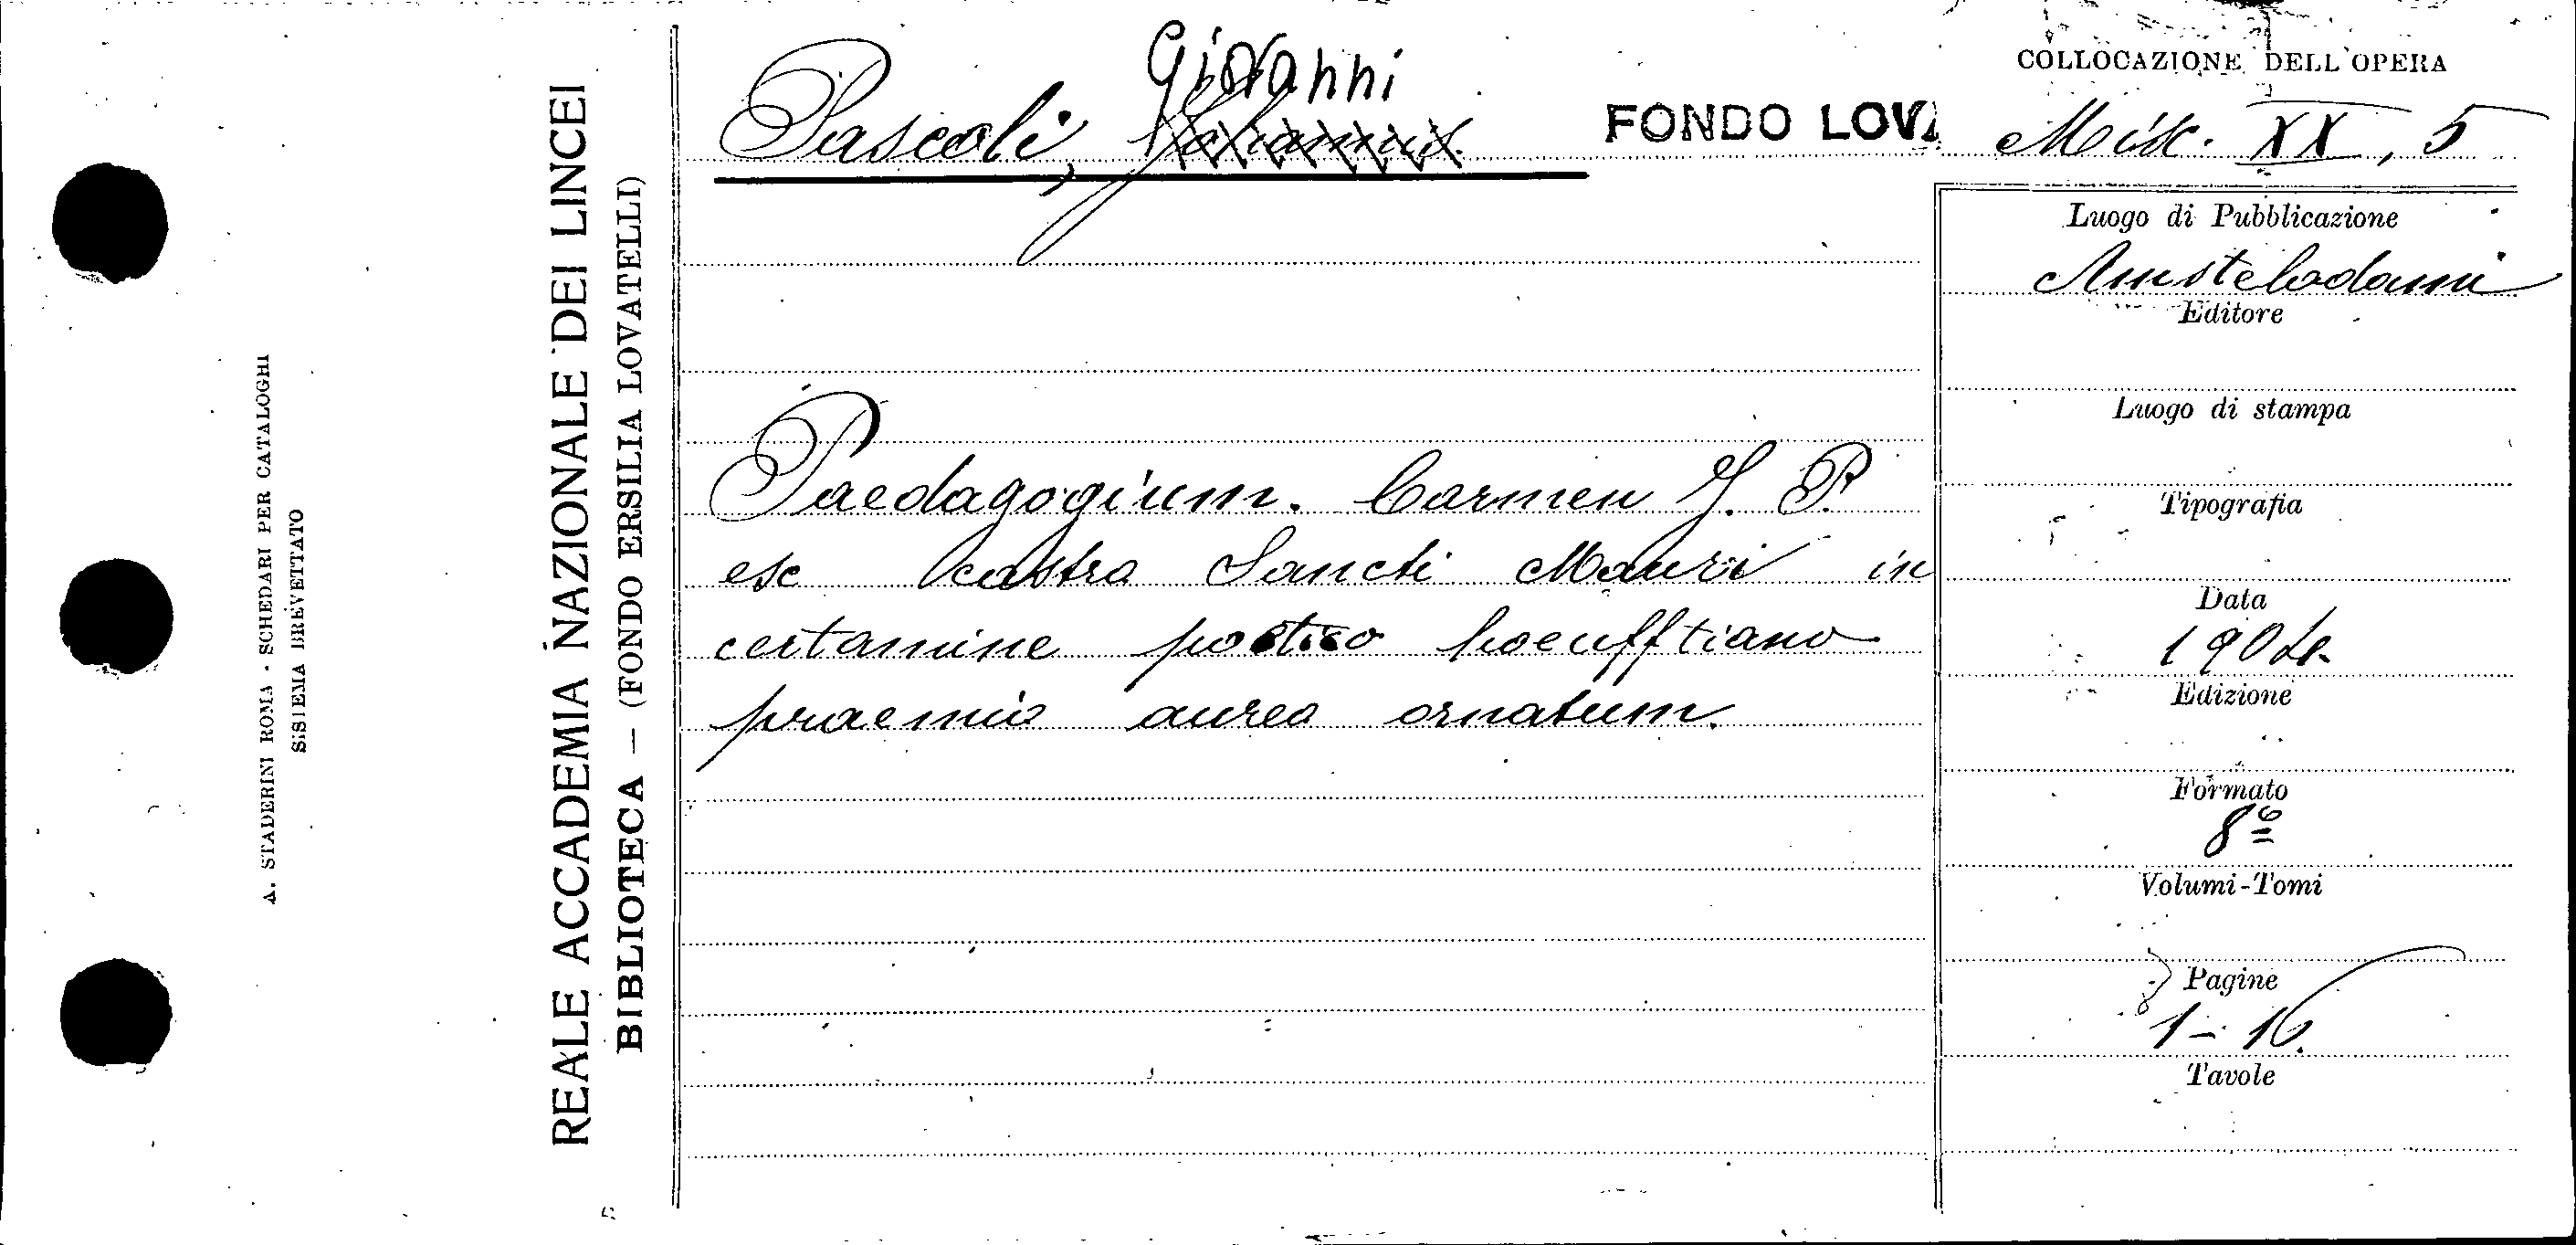 A. STADERINI ROMA - SCHEDARI PER CATALOGHI
SISTEMA BREVETTATO
REALE ACCADEMIA NAZIONALE DEI LINCEI
BIBLIOTECA — (FONDO ERSILIA LOVATELLI)
Giovanni
Pascoli, Johannis.
FONDO LOVA
COLLOCAZIONE DELL'OPERA
Misc. XX, 5
Paedagogium. Carmen J. P.
ex castro Sancti Mauri in
certamine poetico hoeufftiano
praemio aureo ornatum.
Luogo di Pubblicazione
Amstelodami
Editore
Luogo di stampa
Tipografia
Data
1904.
Edizione
Formato
8º
Volumi-Tomi
Pagine
1-16.
Tavole